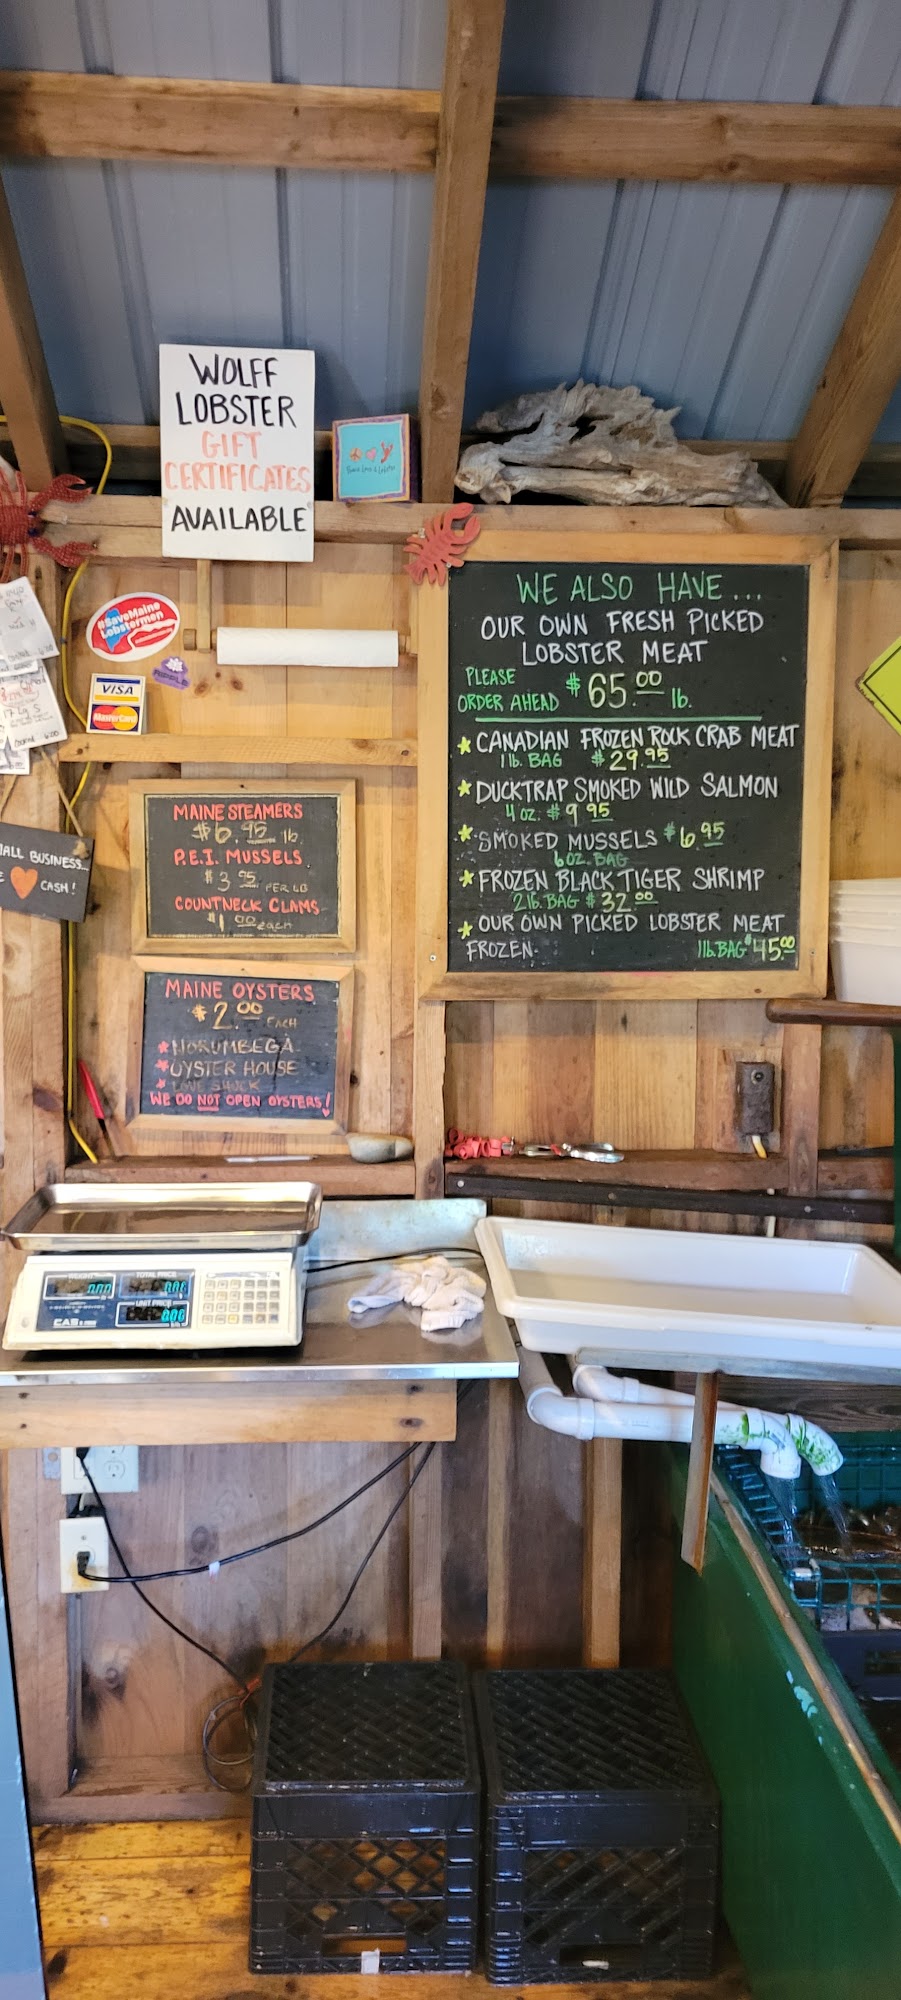 WOLFF
LOBSTER
GIFT
CERTIFICATES
AVAILABLE
Peace Love & Lobster
#SaveMaine
Lobstermen
VISA
MasterCard
ALL BUSINESS...
CASH!
MAINE STEAMERS
$6.95 lb.
P.E.I. MUSSELS
$3.95 PER LB
COUNTNECK CLAMS
$1.00 each
MAINE OYSTERS
$2.00 EACH
★ NORUMBEGA
★ OYSTER HOUSE
★ LOVE SHUCK
WE DO NOT OPEN OYSTERS!
WE ALSO HAVE...
OUR OWN FRESH PICKED
LOBSTER MEAT
PLEASE
ORDER AHEAD $65.00 lb.
★ CANADIAN FROZEN ROCK CRAB MEAT
1 lb. BAG $29.95
★ DUCKTRAP SMOKED WILD SALMON
4 OZ. $9.95
★ SMOKED MUSSELS $6.95
6 OZ. BAG
★ FROZEN BLACK TIGER SHRIMP
2 lb. BAG $32.00
★ OUR OWN PICKED LOBSTER MEAT
FROZEN. 1 lb. BAG $45.00
WEIGHT
TOTAL PRICE
UNIT PRICE
0.00
0.00
0.00
CAS